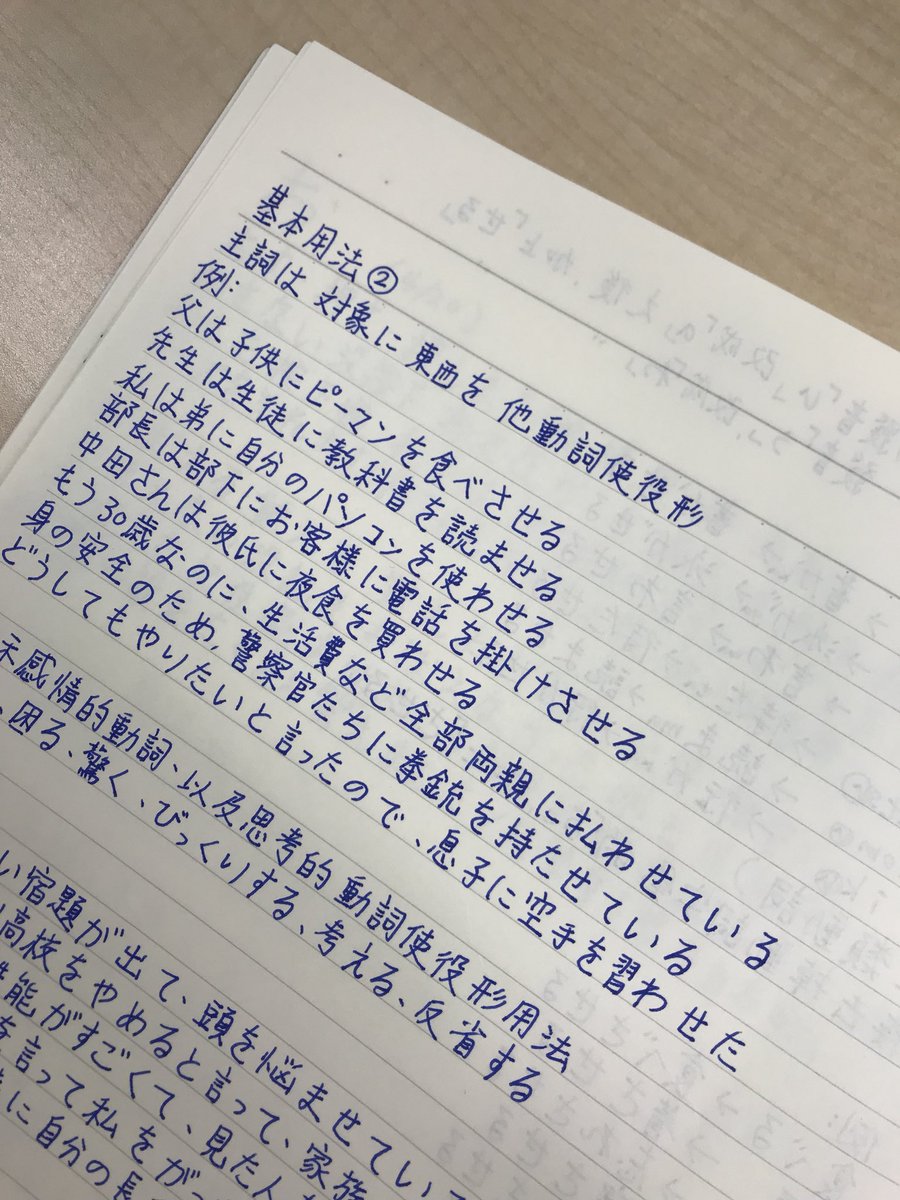 基本用法②
主詞は 対象に 東西を 他動詞使役形
例:
父は子供にピーマンを食べさせる
先生は生徒に教科書を読ませる
私は弟に自分のパソコンを使わせる
部長は部下にお客様に電話を掛けさせる
中田さんは彼氏に夜食を買わせる
もう30歳なのに、生活費など全部両親に払わせている
身の安全のため,警察官たちに拳銃を持たせている
どうしてもやりたいと言ったので、息子に空手を習わせた
示感情的動詞、以及思考的動詞使役形用法
、困る、驚く、びっくりする、考える、反省する
い宿題が出て、頭を悩ませてい
高校をやめると言って、家族
性能がすごくて、見た人
を言って私をが
に自分の長